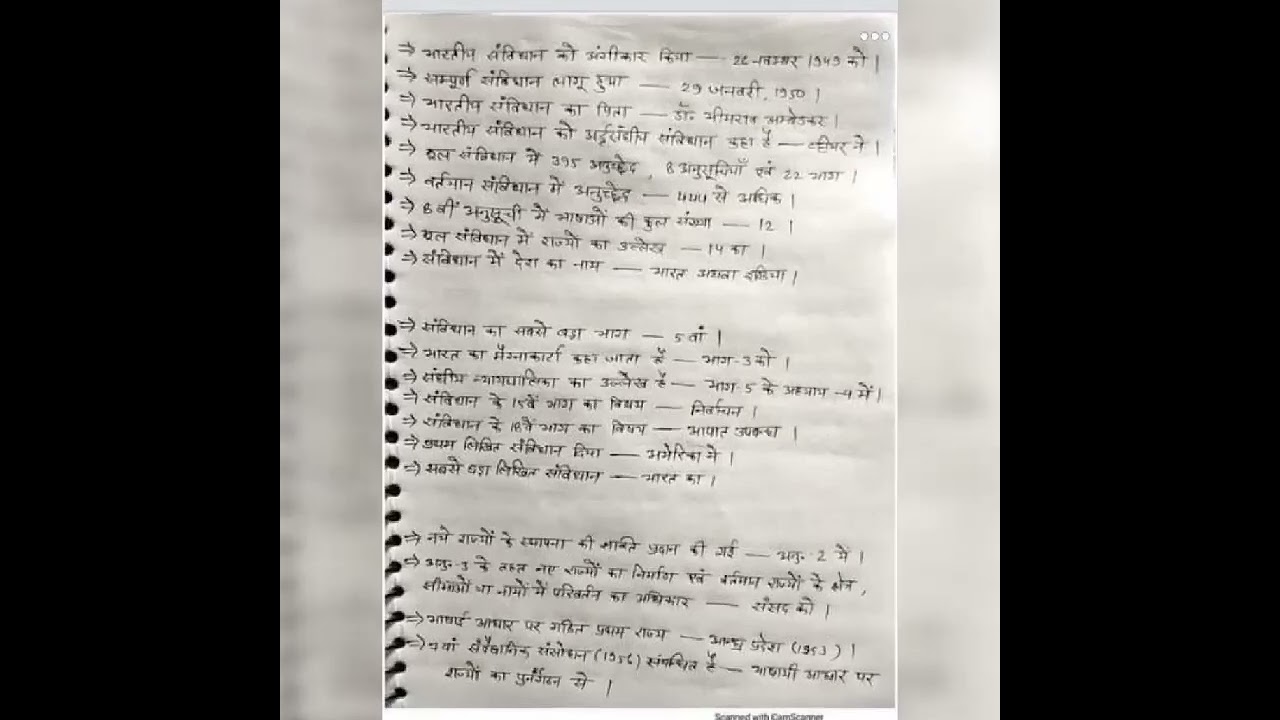 ⇒ भारतीय संविधान को अंगीकार किया — 26 नवम्बर 1949 को |
⇒ सम्पूर्ण संविधान लागू हुया — 29 जनवरी, 1950 |
⇒ भारतीय संविधान का पिता — डॉ० भीमराव अम्बेडकर |
⇒ भारतीय संविधान को अर्द्धसंघीय संविधान कहा है — व्हीयर ने |
⇒ मूल संविधान में 395 अनुच्छेद , 8 अनुसूचियाँ एवं 22 भाग |
⇒ वर्तमान संविधान में अनुच्छेद — 444 से अधिक |
⇒ 8 वीं अनुसूची में भाषाओं की कुल संख्या — 12 |
⇒ मूल संविधान में राज्यों का उल्लेख — 14 का |
⇒ संविधान में देश का नाम — भारत अथवा इंडिया |
⇒ संविधान का सबसे बड़ा भाग — 5 वां |
⇒ भारत का मैग्नाकार्टा कहा जाता है — भाग-3 को |
⇒ संघीय न्यायपालिका का उल्लेख है — भाग-5 के अध्याय -4 में |
⇒ संविधान के 15वें भाग का विषय — निर्वाचन |
⇒ संविधान के 18वें भाग का विषय — आपात उपबन्ध |
⇒ प्रथम लिखित संविधान दिया — अमेरिका ने |
⇒ सबसे बड़ा लिखित संविधान — भारत का |
⇒ नये राज्यों के स्थापना की शक्ति प्रदान की गई — अनु०-2 में |
⇒ अनु०-3 के तहत नए राज्यों का निर्माण एवं वर्तमान राज्यों के क्षेत्र ,
सीमाओं या नामों में परिवर्तन का अधिकार — संसद को |
⇒ भाषाई आधार पर गठित प्रथम राज्य — आन्ध्र प्रदेश (1953) |
⇒ 7वां संवैधानिक संसोधन (1956) संबंधित है — भाषायी आधार पर
राज्यों का पुर्नगठन से |
Scanned with CamScanner